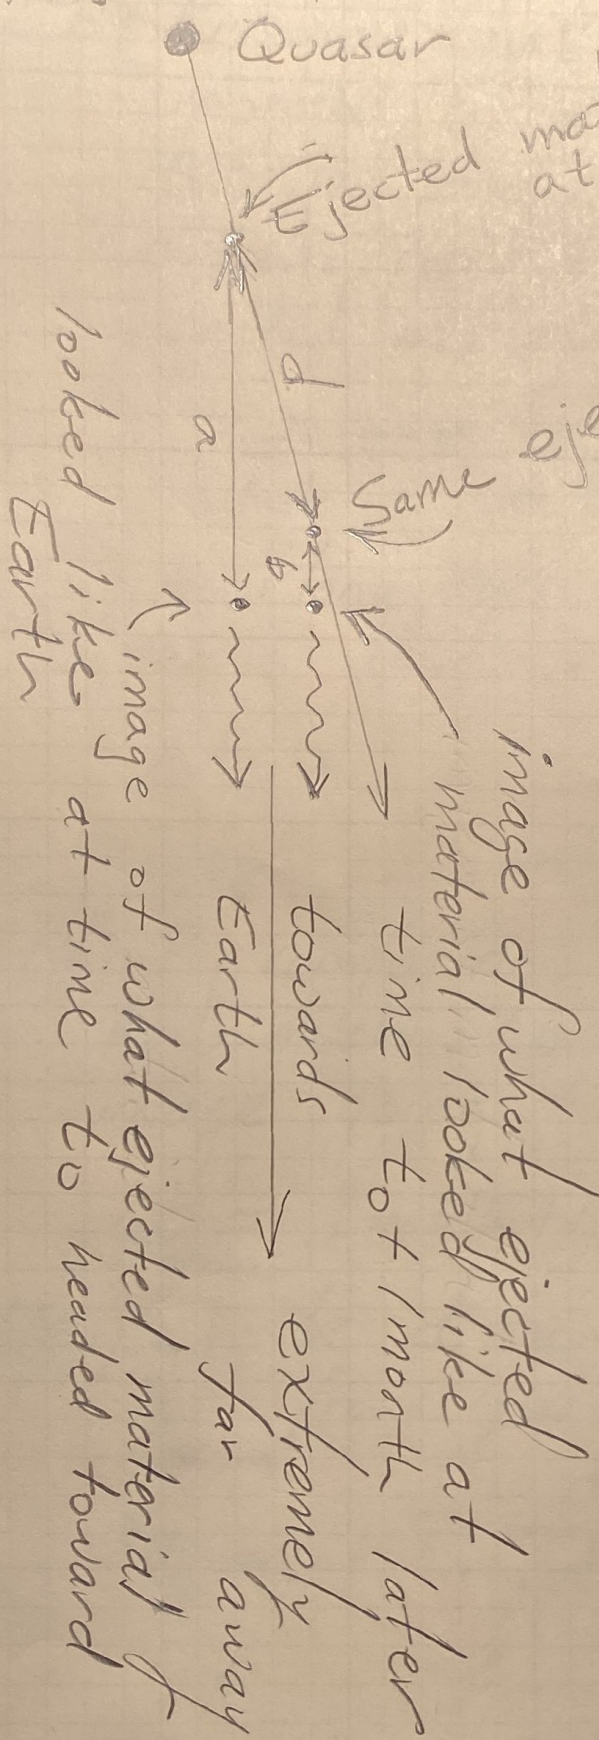 Quasar
Ejected
at
d
a
Same
b
image of what ejected
material looked like at
time to + 1 month later
towards
Earth
extremely
far away
image of what ejected material
looked like at time to headed toward
Earth